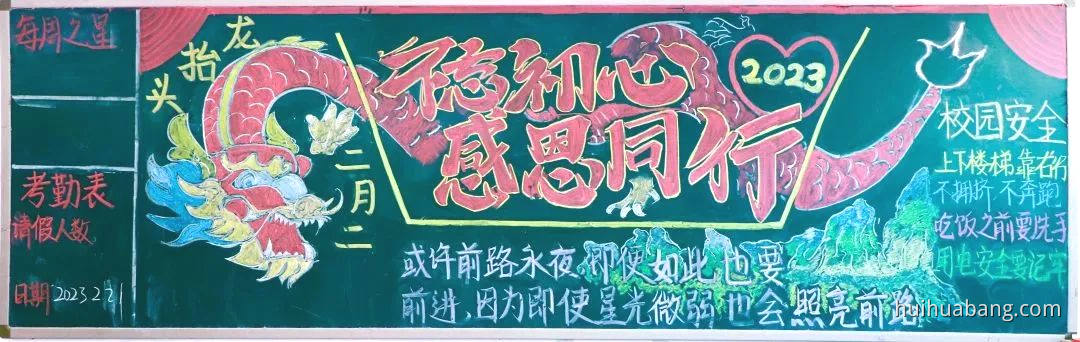 每周之星
考勤表
请假人数
日期2023 2 21
龙
抬
头
二月二
不忘初心
感恩同行
2023
或许前路永夜,即便如此也要
前进,因为即使星光微弱也会照亮前路
校园安全
上下楼梯靠右行
不拥挤 不奔跑
吃饭之前要洗手
用电安全要记牢
huihuabang.com